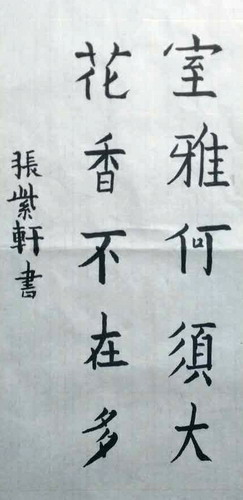 室雅何須大
花香不在多
張紫軒書